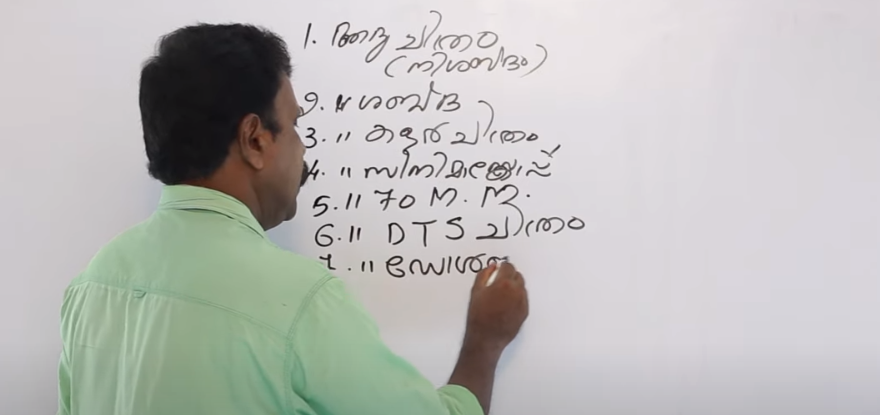 1. ആദ്യ ചിത്രം
(നിശബ്ദം)
2. " ശബ്ദ
3. " കളർ ചിത്രം
4. " സിനിമാസ്കോപ്പ്
5. " 70 M.M.
6. " DTS ചിത്രം
7. " ഡോൾ